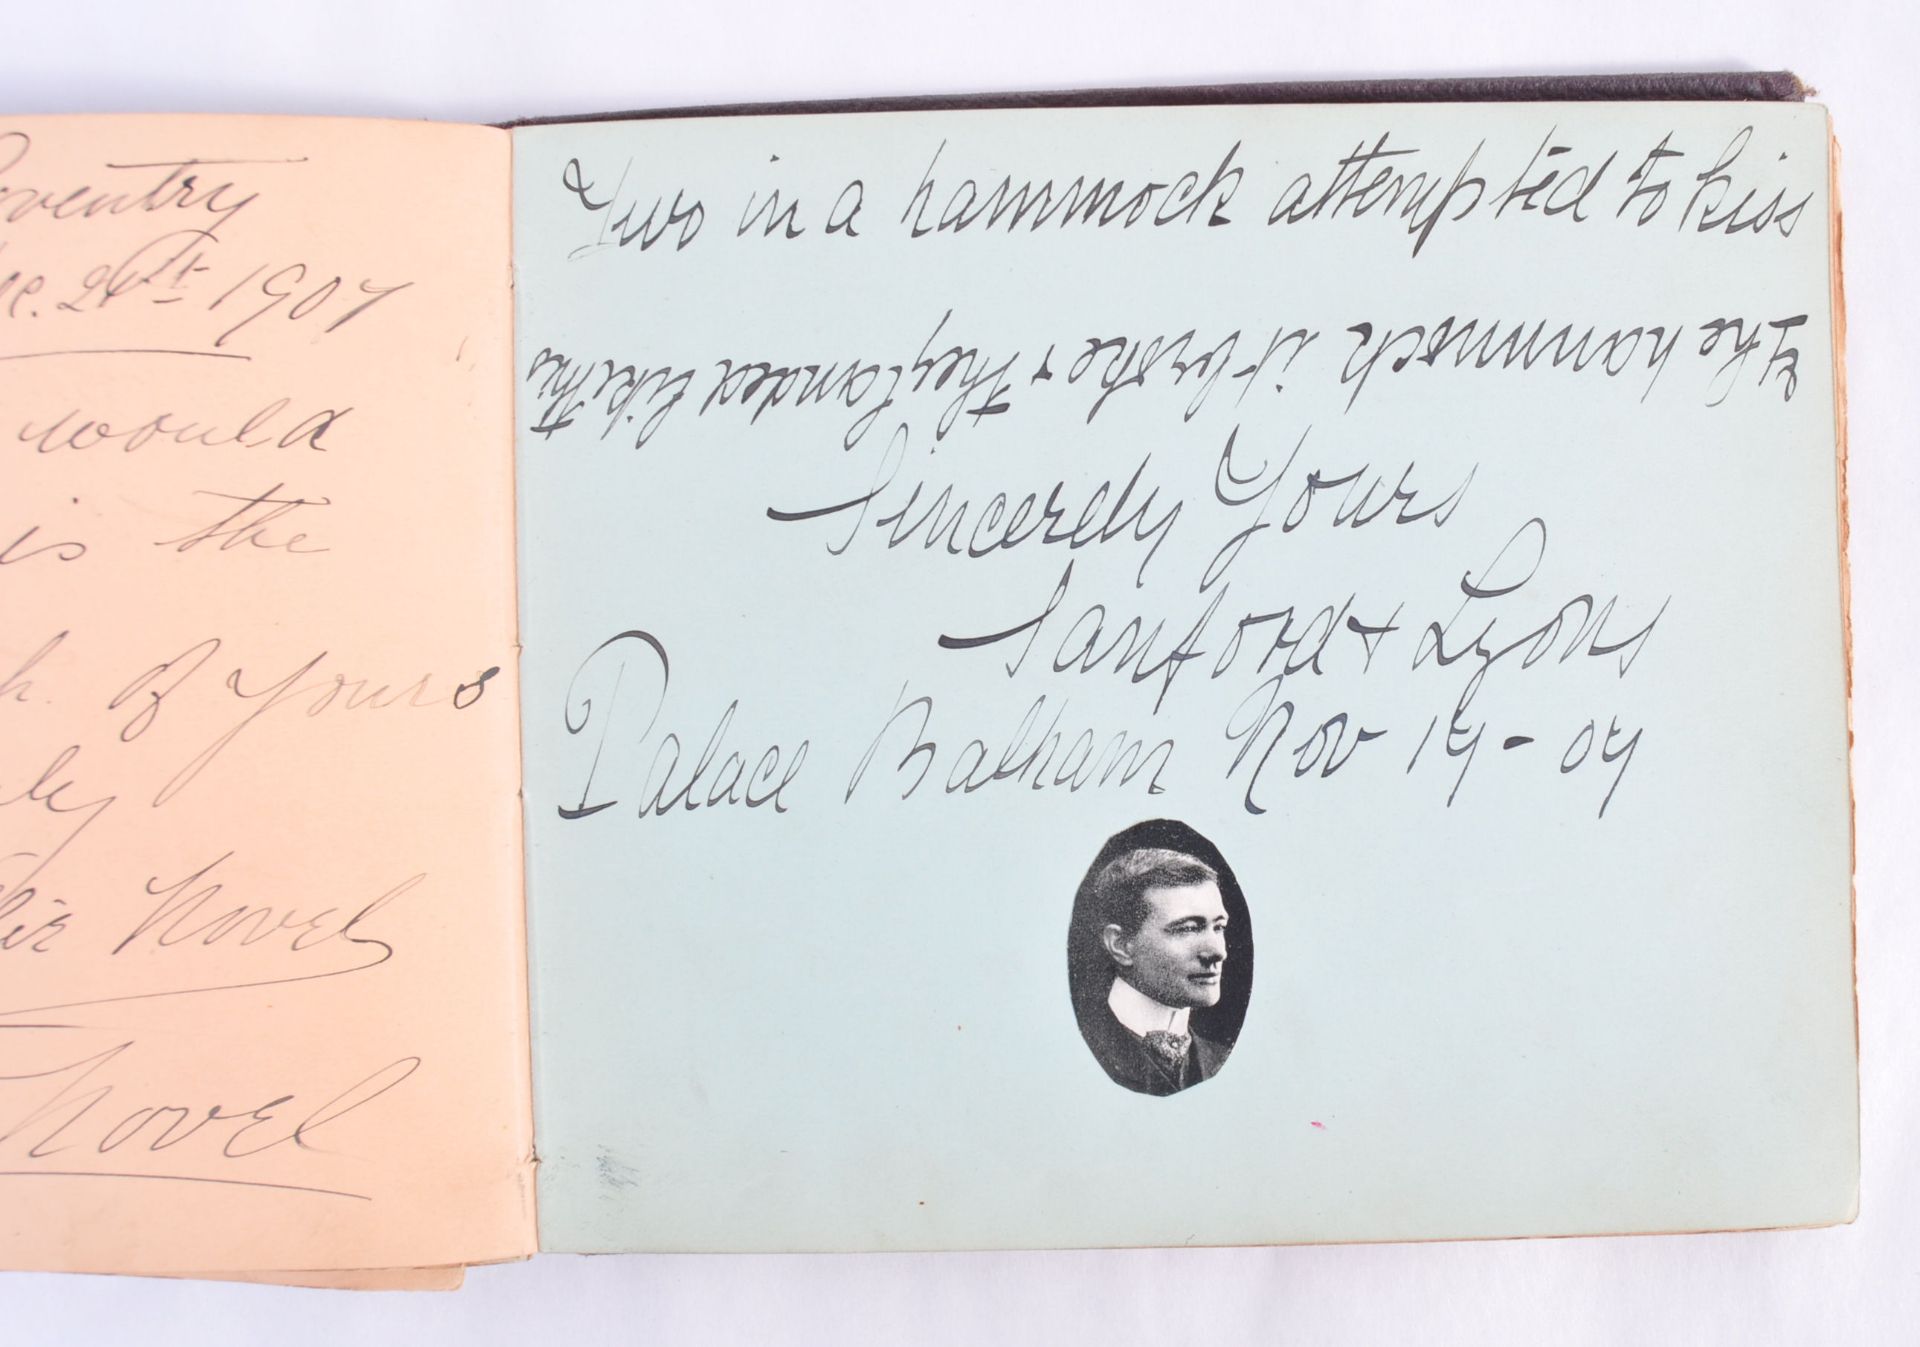 Coventry
Dec. 26th 1907
would
is the
of yours
Novel
Novel
Two in a hammock attempted to kiss
The hammock it broke & they landed like this
Sincerely Yours
Sanford & Lyons
Palace Balham Nov 19 - 07